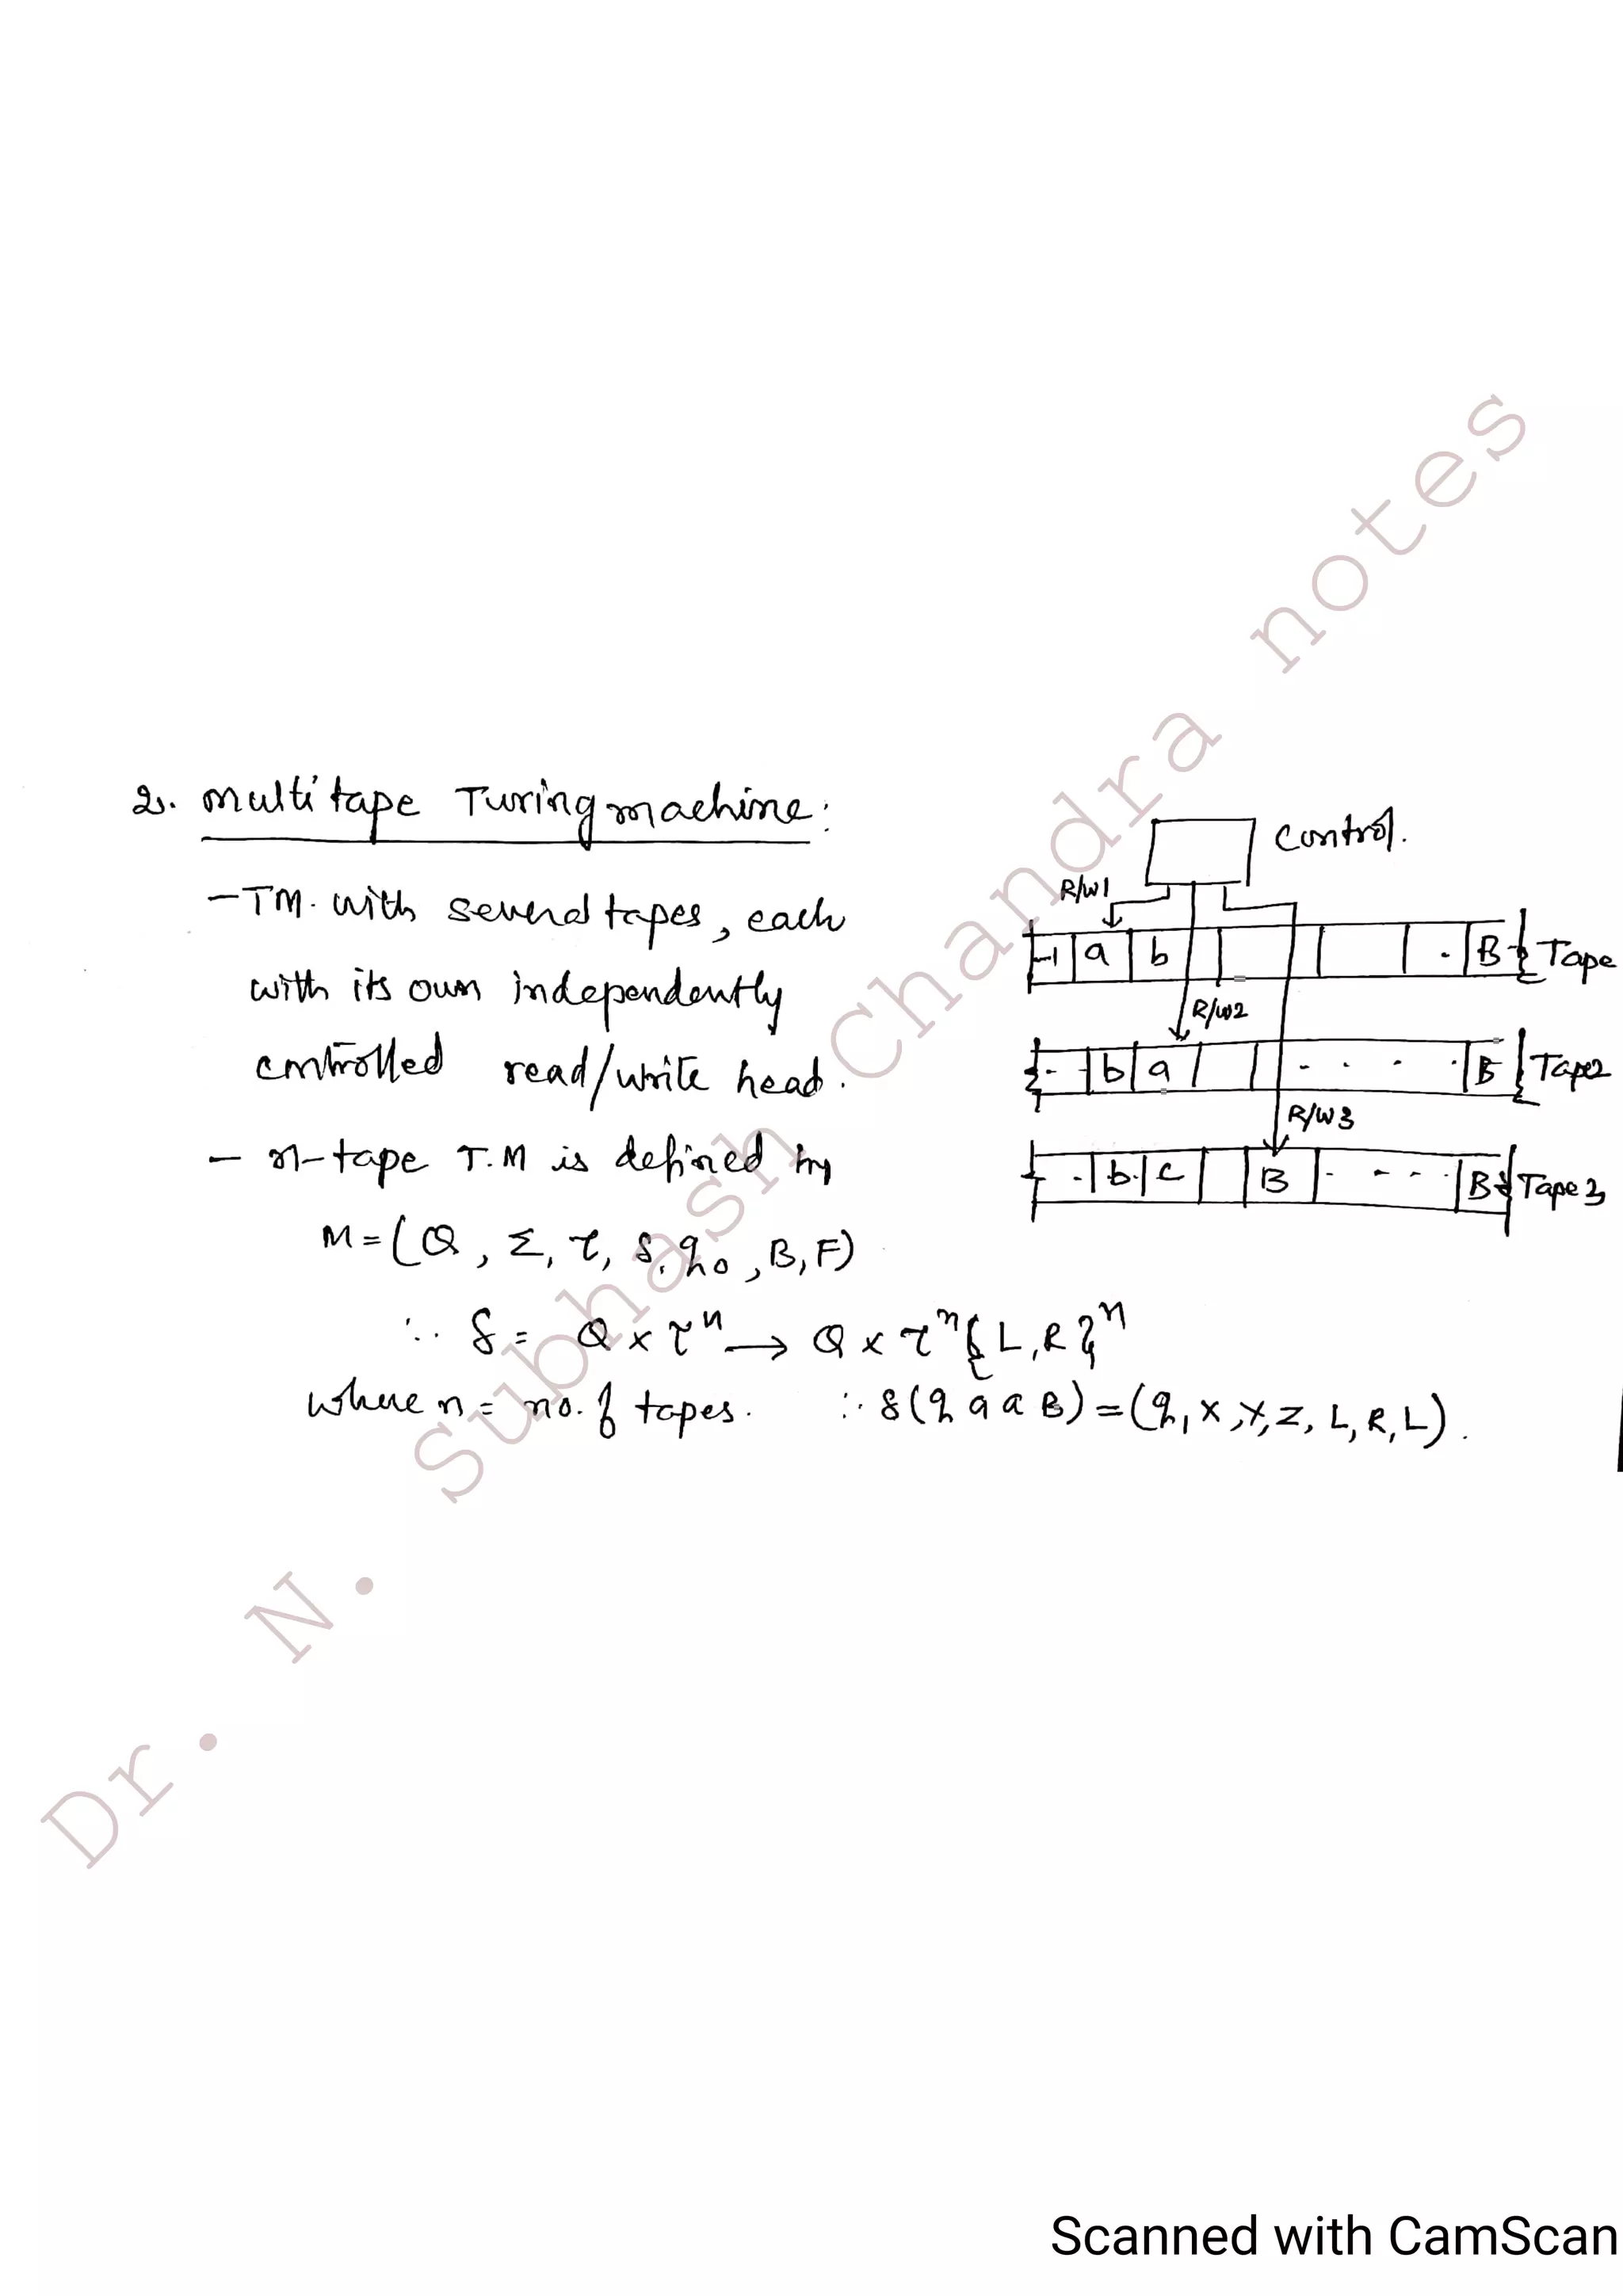 2. Multi tape Turing machine:
- TM. with several tapes, each
with its own independently
controlled read/write head.
- n-tape T.M is defined by
M = (Q, Σ, τ, δ, q0, B, F)
∴ δ = Q × τ^n → Q × τ^n {L, R}^n
where n = no. of tapes. ∴ δ(q a a B) = (q1, x, y, z, L, R, L).
Control.
R/W1
a b . B Tape
R/W2
- - b a - . . . B Tape2
R/W3
. b. c B - - - . B Tape 3
Dr. N. Subhash Chandra notes
Scanned with CamScan